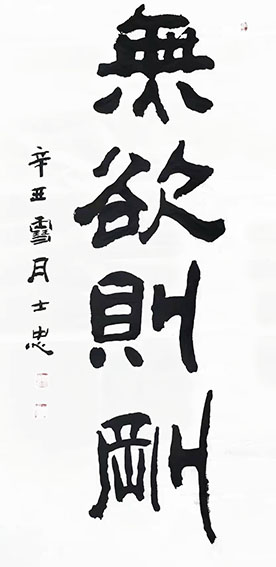 無欲則剛
辛丑雪月士忠